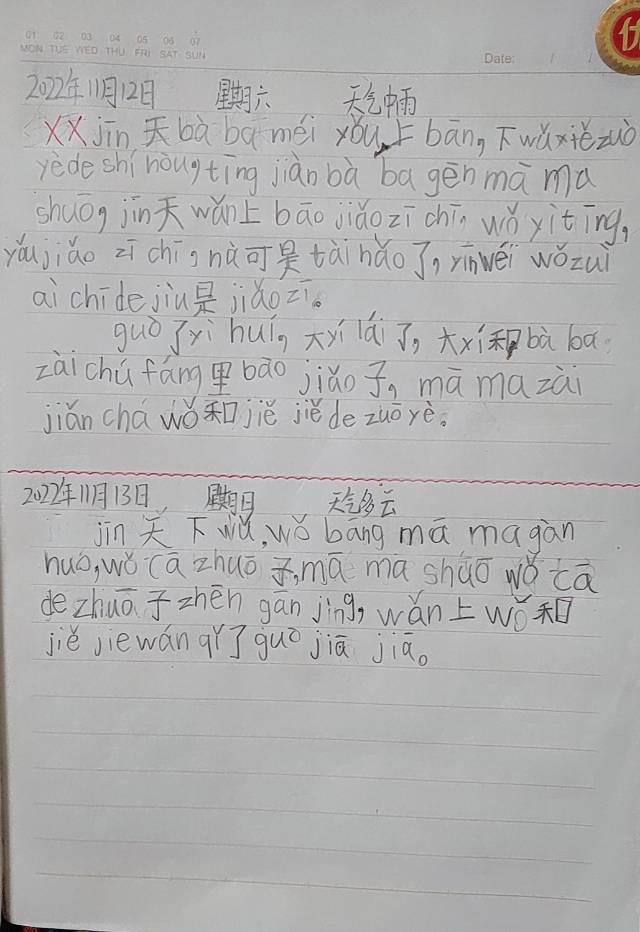 01 02 03 04 05 06 07
MON TUE WED THU FRI SAT SUN
Date: / /
优
2022年11月12日 星期六 天气中雨
XX jīn 天 bà ba méi yǒu 上 bān, 下 wǔ xiě zuò
yè de shí hòu, tīng jiàn bà ba gēn mā ma
shuō, jīn 天 wǎn 上 bāo jiǎo zī chī, wǒ yì tīng,
yǒu jiǎo zī chī, nà 可是 tài hǎo 了, yīn wéi wǒ zuì
ài chī de jiù 是 jiǎo zī。
guò 了 yì huí, 大 yí lái 了, 大 xí 和 bà ba
zài chú fáng 里 bāo jiǎo 子, mā ma zài
jiǎn chá wǒ 和 jiě jiě de zuō yè。
2022年11月13日 星期日 天气多云
jīn 天 下 wǔ, wǒ bāng mā ma gàn
huó, wǒ cā zhuō 子, mā ma shuō wǒ cā
de zhuō 子 zhēn gān jìng, wǎn 上 wǒ 和
jiě jie wán qǐ 了 guò jiā jiā。